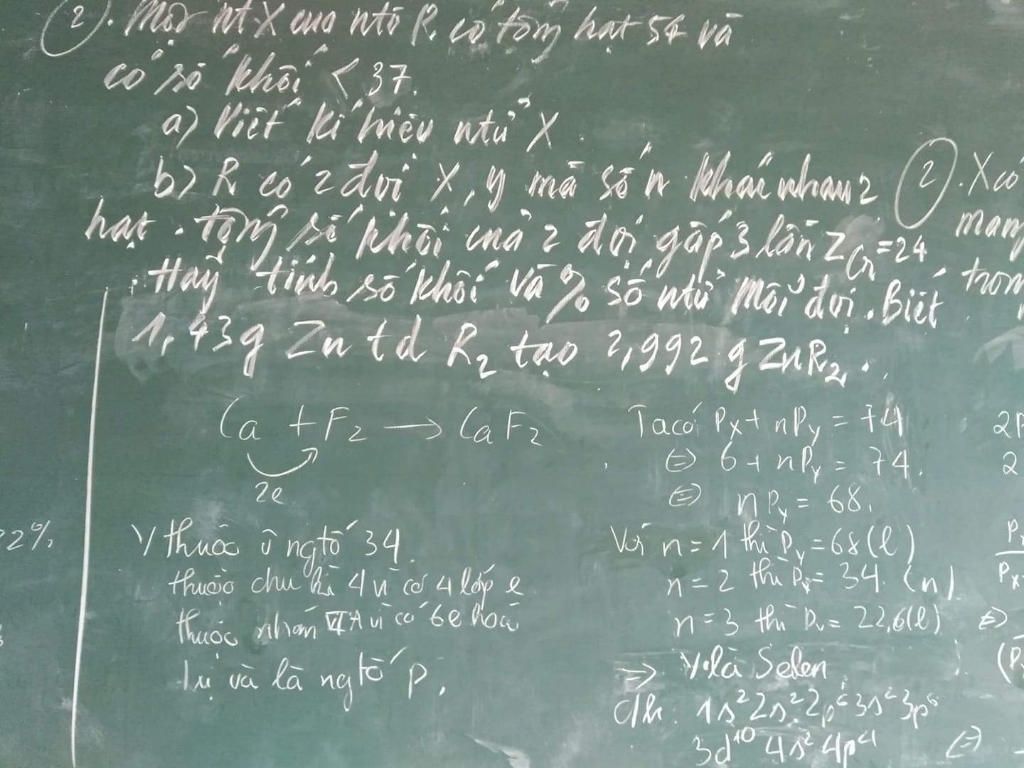 2. Một nt X của ntố R có tổng hạt 54 và
có số khối < 37.
a) Viết kí hiệu ntử X.
b) R có 2 đvị X, y mà số n khác nhau 2
hạt. tổng số khối của 2 đvị gấp 3 lần Z Cr = 24
. Hãy tính số khối và % số ntử mỗi đvị. Biết
1,43g Zn td R₂ tạo 2,992 g ZnR₂.
Ca + F₂ → CaF₂
2e
Y thuộc ô ngtố 34
thuộc chu kì 4 vì có 4 lớp e
thuộc nhóm VIA vì có 6e hoá
trị và là ngtố p.
Ta có Pₓ + nPᵧ = 74
⇔ 6 + nPᵧ = 74.
⇔ nPᵧ = 68.
Với n = 1 thì Pᵧ = 68 (l)
n = 2 thì Pᵧ = 34 (n)
n = 3 thì Pᵧ = 22,6(l)
⇒ Y là Selen
Ch: 1s² 2s² 2p⁶ 3s² 3p⁶
3d¹⁰ 4s² 4p⁴
2. X có
mang
tron
2P
2
Pₓ
Pₓ
⇔
(P
⇔
22%